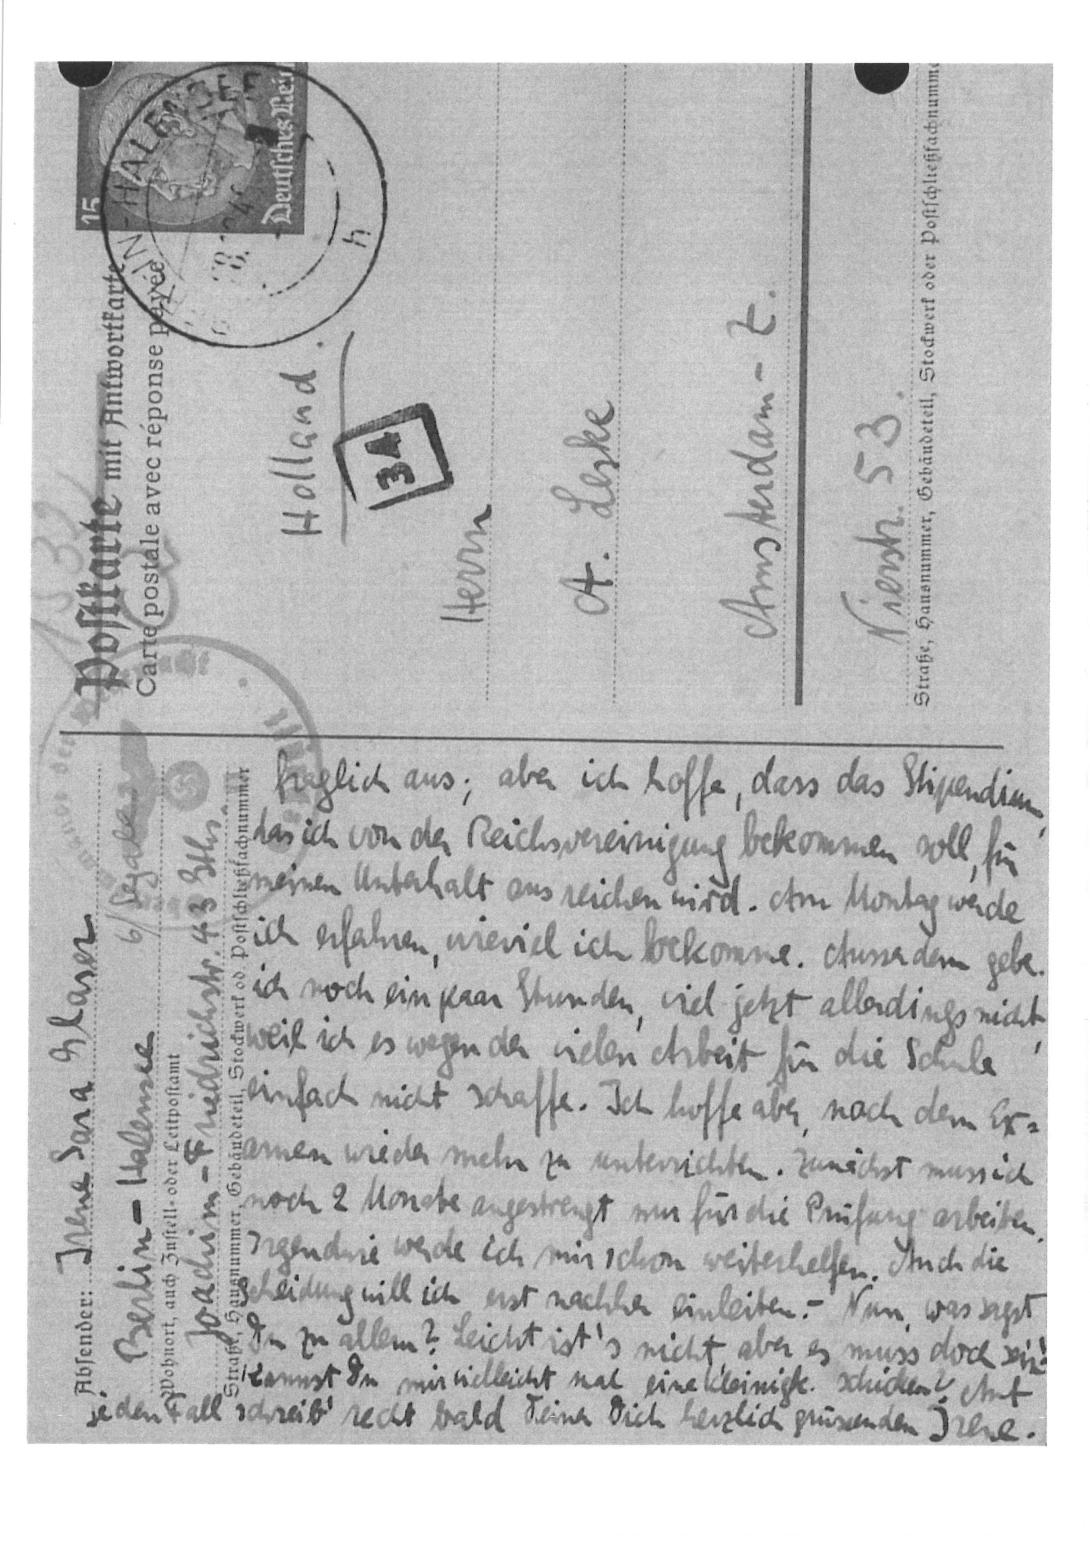 Postkarte mit Antwortkarte
Carte postale avec réponse payée
15
Deutsches Reich
34
Holland.
Herrn
A. Leske
Amsterdam-Z.
Nierstr. 53.
Straße, Hausnummer, Gebäudeteil, Stockwerk oder Postschließfachnummer
Absender: Irene Sara Glaser
b/Segaler
Berlin-Halensee
Wohnort, auch Zustell- oder Leitpostamt
Joachim-Friedrichstr. 43 Gths.
Straße, Hausnummer, Gebäudeteil, Stockwerk od. Postschließfachnummer
fraglich aus; aber ich hoffe, dass das Stipendium,
das ich von der Reichsvereinigung bekommen soll, für
meinen Unterhalt ausreichen wird. Am Montag werde
ich erfahren, wieviel ich bekomme. Ausserdem gebe
ich noch ein paar Stunden, viel jetzt allerdings nicht,
weil ich es wegen der vielen Arbeit für die Schule
einfach nicht schaffe. Ich hoffe aber, nach dem Ex=
amen wieder mehr zu unterrichten. Zunächst muss ich
noch 2 Monate angestrengt nur für die Prüfung arbeiten.
Irgendwie werde ich mir schon weiterhelfen. Auch die
Scheidung will ich erst nachher einleiten.- Nun, was sagst
Du zu allem? Leicht ist's nicht, aber es muss doch sein!
Kannst Du mir vielleicht mal eine Kleinigk. schicken? Auf
jeden Fall schreib' recht bald Deiner Dich herzlich grüssenden Irene.